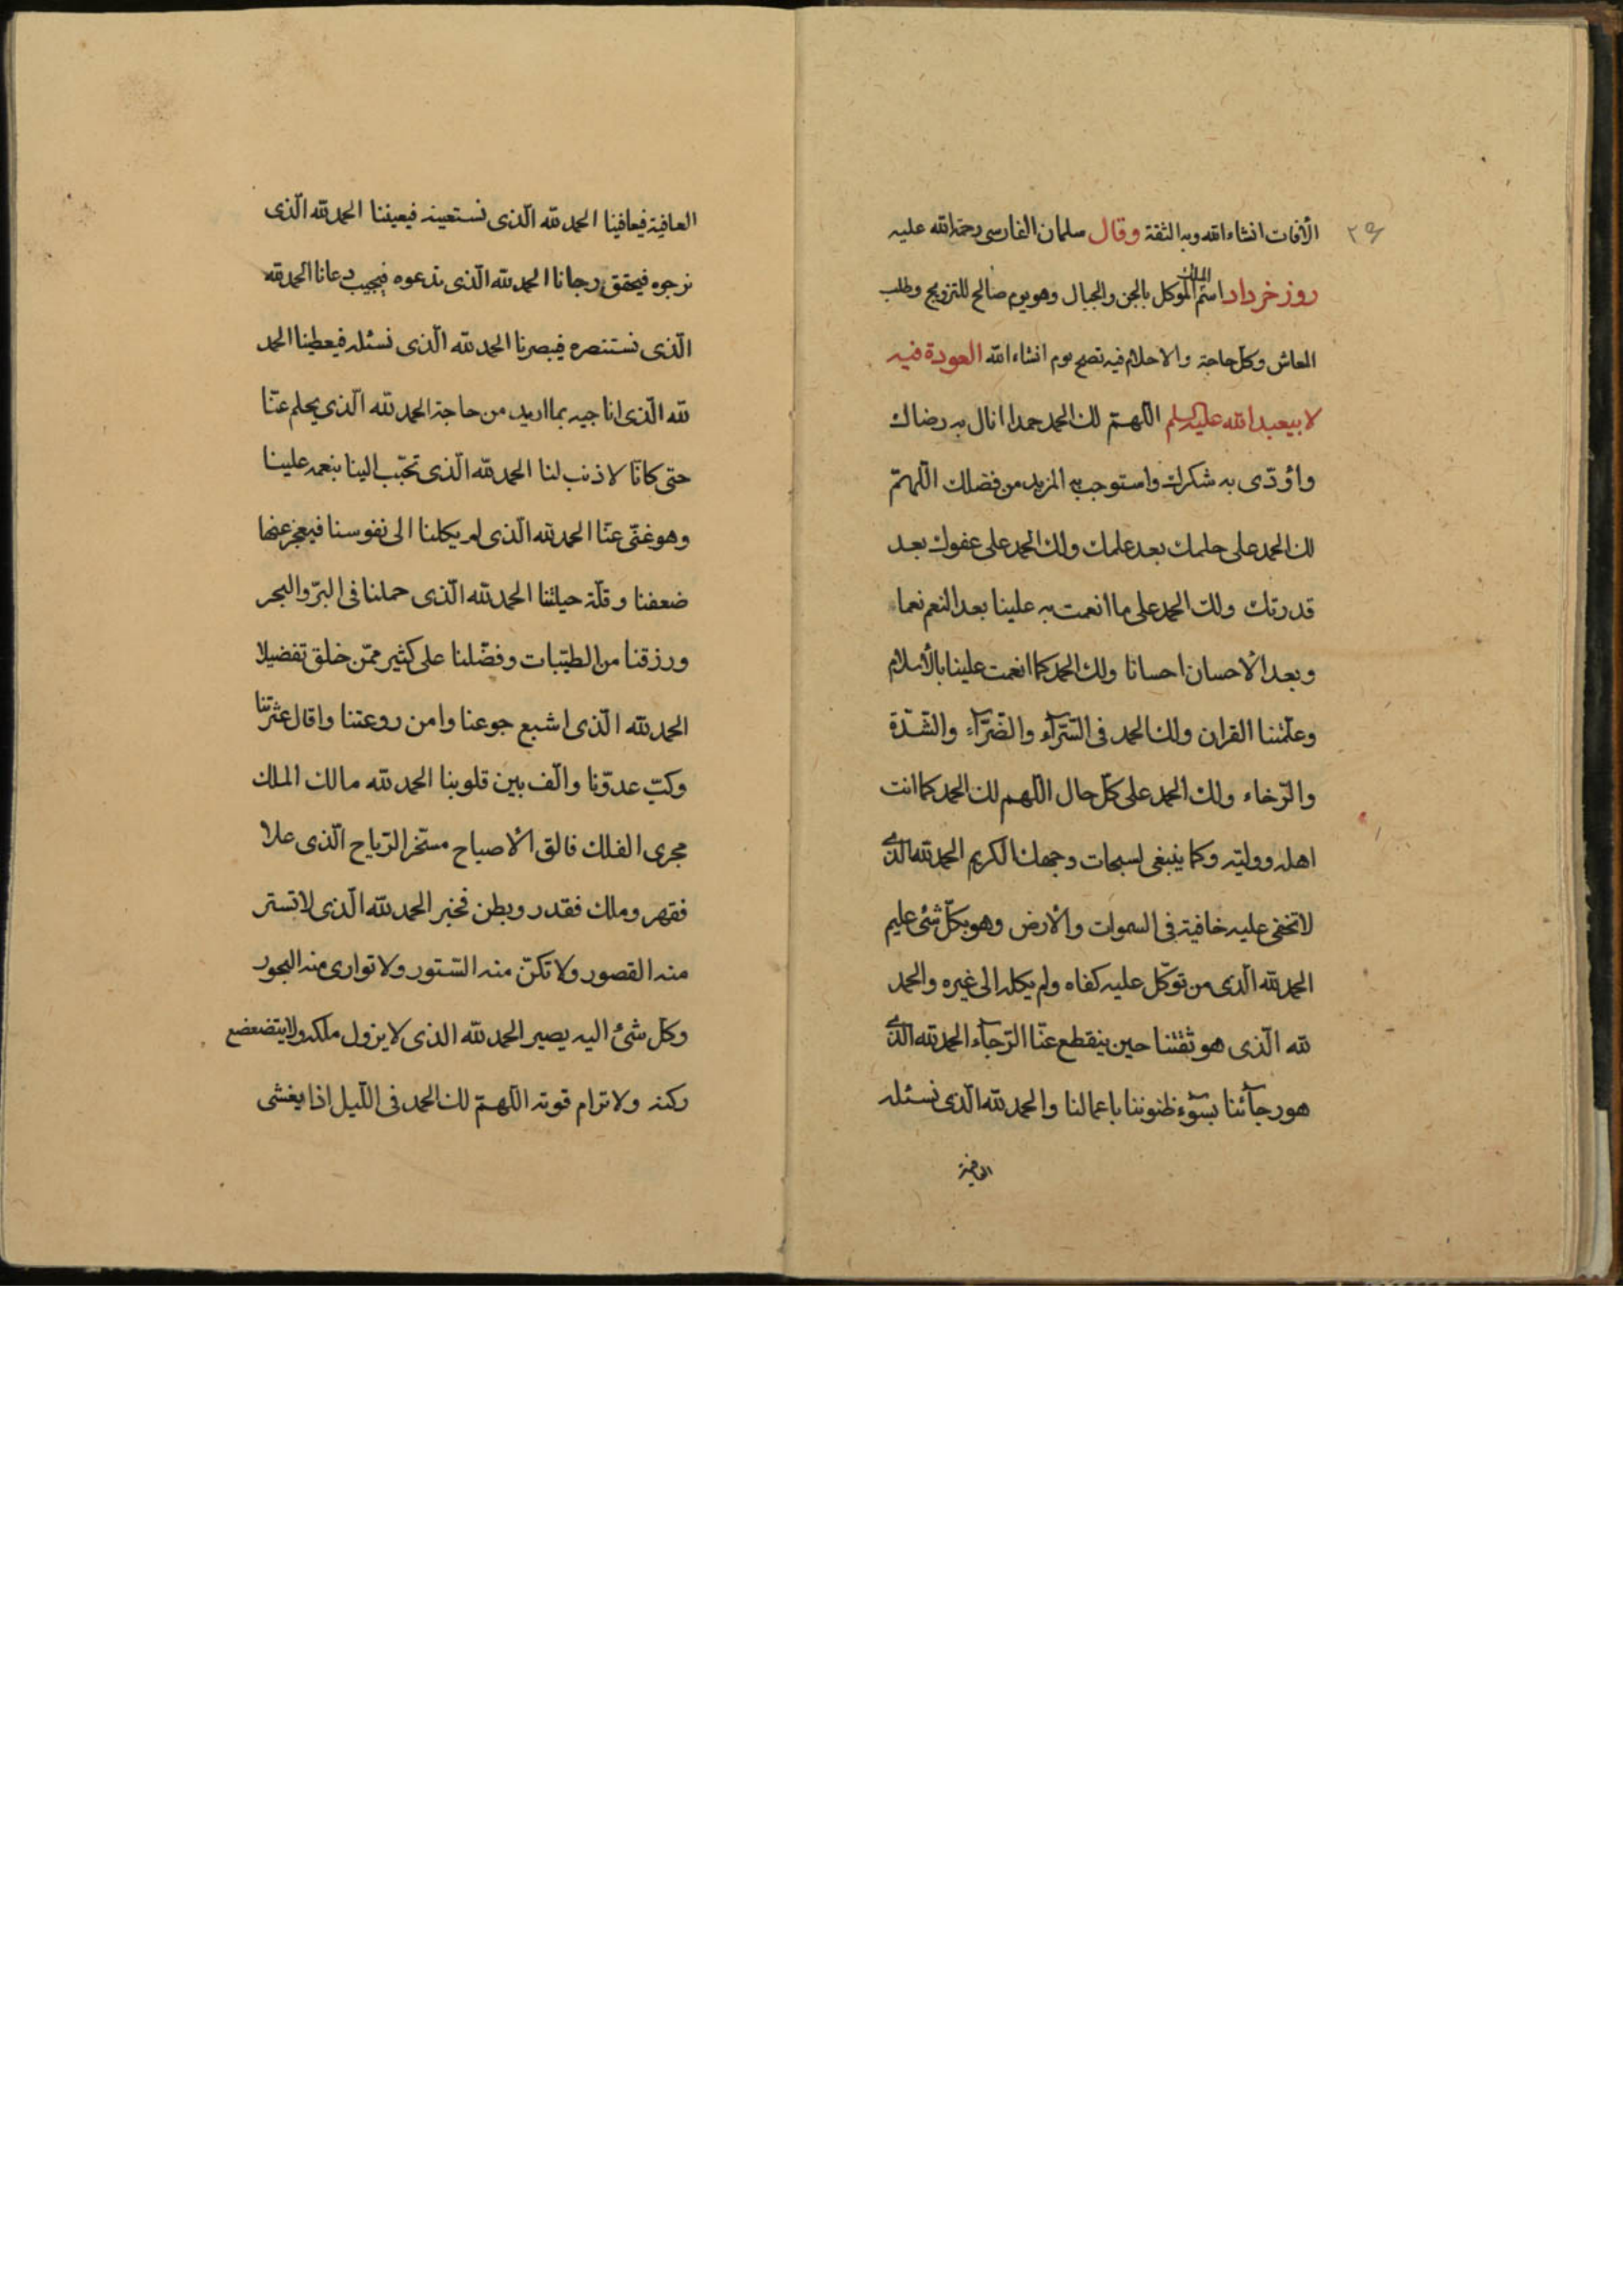 ٢٩
الأفات انشاءالله وبه الثقة وقال سلمان الفارسى رحمة الله عليه
روز خرداد اسم الملك الموكل بالجن والجبال وهو يوم صالح للتزويج وطلب
المعاش وكل حاجة والاحلام فيه تصح يوم انشاءالله العودة فيه
لابيعبدالله عليه السلم اللهمّ لك الحمد حمدا انال به رضاك
واؤدّى به شكرك واستوجب به المزيد من فضلك اللهمّ
لك الحمد على حلمك بعد علمك ولك الحمد على عفوك بعد
قدرتك ولك الحمد على ما انعمت به علينا بعد النعم نعما
وبعد الاحسان احسانا ولك الحمد كما انعمت علينا بالأسلام
وعلّمتنا القران ولك الحمد فى السّرآء والضّرّآء والشّدّة
والرّخاء ولك الحمد على كلّ حال اللهم لك الحمد كما انت
اهله ووليّه وكما ينبغى لسبحات وجهك الكريم الحمد لله الذى
لا تخفى عليه خافية فى السموات والأرض وهو بكلّ شئ عليم
الحمد لله الّذى من توكّل عليه كفاه ولم يكله الى غيره والحمد
لله الّذى هو ثقتنا حين ينقطع عنّا الرّجآء الحمد لله الّذى
هو رجآئنا بسوٓء ظنوننا باعمالنا والحمد لله الّذى نسئله
العافية
العافية فيعافينا الحمد لله الّذى نستعينه فيعيننا الحمد لله الّذى
نرجوه فيحقق رجانا الحمد لله الّذى ندعوه فيجيب دعانا الحمد لله
الّذى نستنصره فينصرنا الحمد لله الّذى نسئله فيعطينا الحمد
لله الّذى اناجيه بما اريد من حاجة الحمد لله الّذى يحلم عنّا
حتى كانّا لا ذنب لنا الحمد لله الّذى تحبّب الينا بنعمه علينا
وهو غنّى عنّا الحمد لله الّذى لم يكلنا الى نفوسنا فيعجز عنها
ضعفنا وقلّة حيلتنا الحمد لله الّذى حملنا فى البرّ والبحر
ورزقنا من الطيّبات وفضّلنا على كثير ممّن خلق تفضيلا
الحمد لله الّذى اشبع جوعنا وامن روعتنا واقال عثرتنا
وكبت عدوّنا والّف بين قلوبنا الحمد لله مالك الملك
مجرى الفلك فالق الأصباح مسخّر الرّياح الّذى علا
فقهر وملك فقدر وبطن فخبر الحمد لله الّذى لا تستر
منه القصور ولا تكنّ منه السّتور ولا توارى منه البحور
وكلّ شئ اليه يصير الحمد لله الذى لا يزول ملكه ولا يتضعضع
ركنه ولا ترام قوته اللهمّ لك الحمد فى اللّيل اذا يغشى